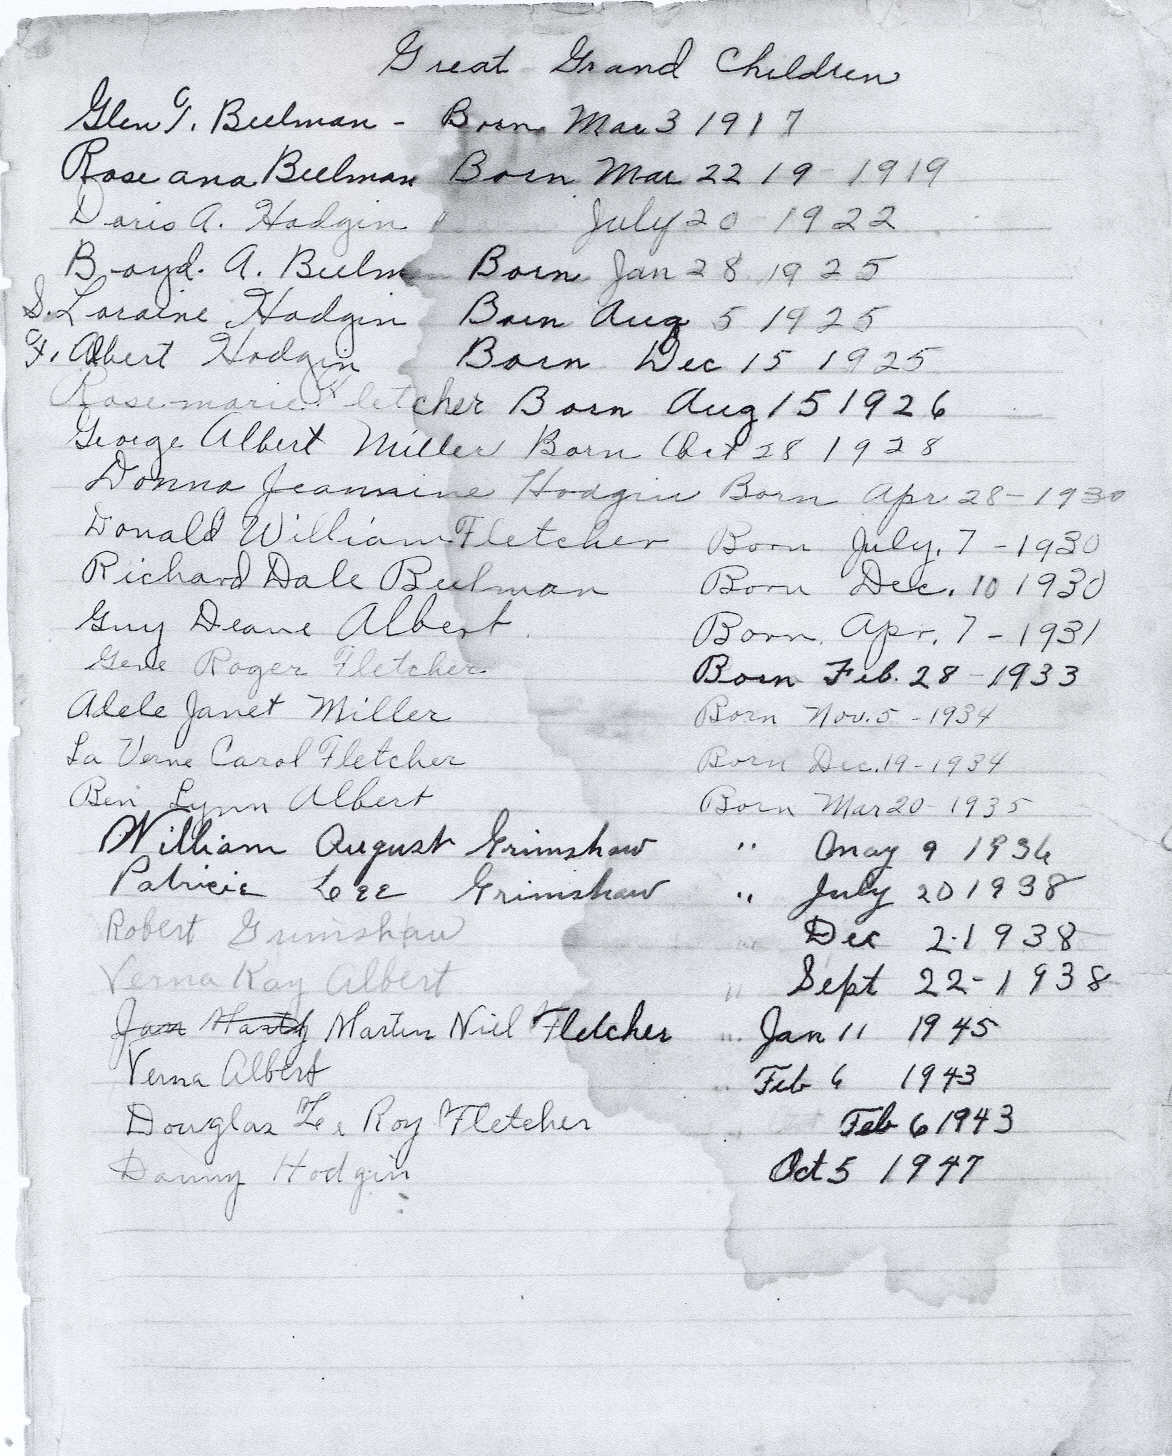 Great Grand Children
Glen G. Beelman - Born Mar 3 1917
Rose ana Beelman Born Mar 22 19 - 1919
Doris A. Hodgin " July 20 1922
Boyd. A. Beelm Born Jan 28 1925
S. Loraine Hodgin Born Aug 5 1925
F. Albert Hodgin Born Dec 15 1925
Rose-marie Fletcher Born Aug 15 1926
George Albert Miller Born Oct 28 1928
Donna Jeannine Hodgin Born Apr 28 - 1930
Donald William Fletcher Born July. 7 - 1930
Richard Dale Beelman Born Dec. 10 1930
Guy Deane Albert Born. Apr. 7 - 1931
Gene Roger Fletcher Born Feb. 28 - 1933
Adele Janet Miller Born Nov. 5 - 1934
La Verne Carol Fletcher Born Dec. 19 - 1934
Ben Lynn Albert Born Mar 20 - 1935
William August Grimshaw " May 9 1936
Patricie Lee Grimshaw " July 20 1938
Robert Grimshaw " Dec 2 - 1938
Verna Kay Albert " Sept 22 - 1938
Jan Marty Martin Niel Fletcher " Jan 11 1945
Verna Albert " Feb 6 1943
Douglas Le Roy Fletcher " Feb 6 1943
Danny Hodgin Oct 5 1947